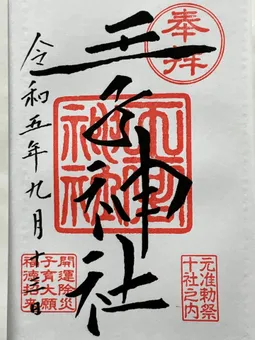 奉拝
王子神社
王子神社
令和五年九月十三日
元准勅祭
十社之内
開運除災
子育大願
福徳荘来